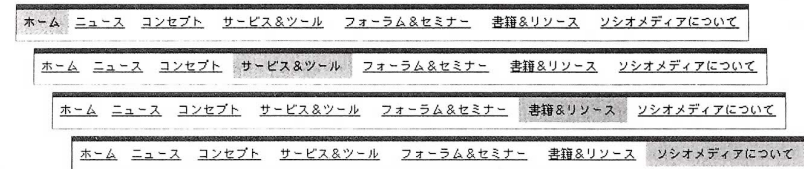 ホーム ニュース コンセプト サービス&ツール フォーラム&セミナー 書籍&リソース ソシオメディアについて
ホーム ニュース コンセプト サービス&ツール フォーラム&セミナー 書籍&リソース ソシオメディアについて
ホーム ニュース コンセプト サービス&ツール フォーラム&セミナー 書籍&リソース ソシオメディアについて
ホーム ニュース コンセプト サービス&ツール フォーラム&セミナー 書籍&リソース ソシオメディアについて